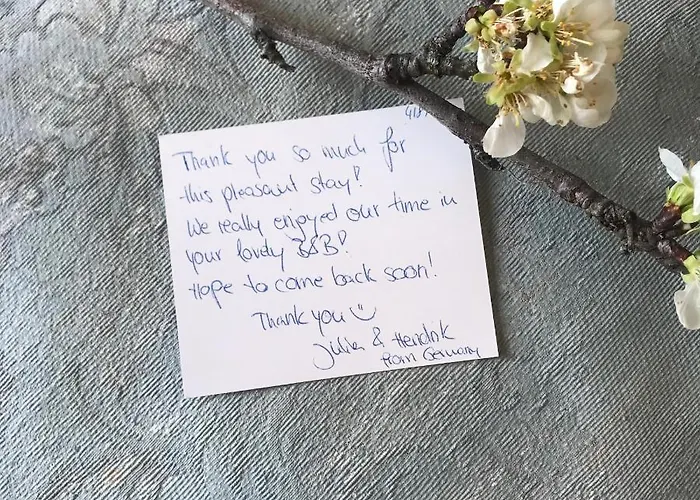 Thank you so much for
this pleasant stay!
We really enjoyed our time in
your lovely B&B!
Hope to come back soon!
Thank you
& Hendrik
from Germany